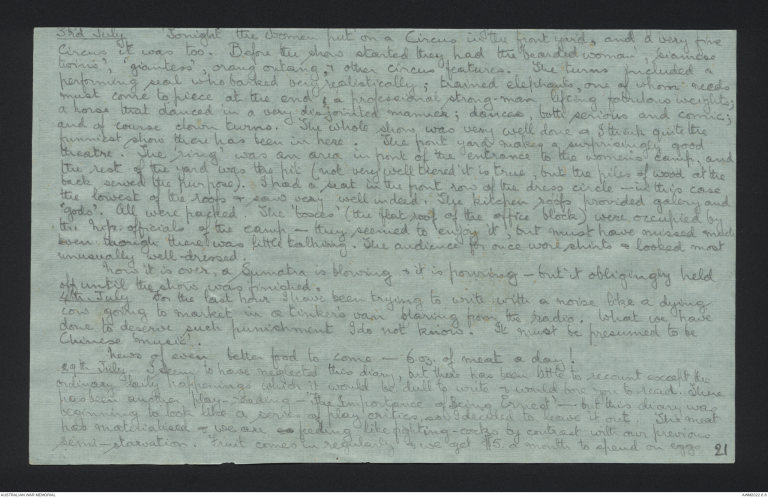 3rd July Tonight the women put on a Circus in the front yard, and a very fine
Circus it was too. Before the show started they had the 'bearded woman', 'siamese
twins', 'giantess', orang outang, & other circus features. The turns included a
performing seal who barked very realistically; trained elephants, one of whom needs
must come to piece at the end; a professional strong-man lifting fabulous weights;
a horse that danced in a very disjointed manner; dances, both serious and comic;
and of course clown turns. The whole show was very well done & I think quite the
funniest show there has been in here. The front yard makes a surprisingly good
theatre. The 'ring' was an area in front of the entrance to the women's camp, and
the rest of the yard was the pit (not very well tiered it is true, but the piles of wood at the
back served the purpose). I had a seat in the front row of the dress circle - in this case
the lowest of the roofs & saw very well indeed. The kitchen roofs provided gallery and
'gods'. All were packed. The boxes (the flat roof of the office block) were occupied by
the Nip. officials of the camp - they seemed to enjoy it, but must have missed much
even though there was little talking. The audience for once wore shirts & looked most
unusually well-dressed.
Now it is over, a Sumatra is blowing & it is pouring - but it obligingly held
off until the show was finished.
4th July For the last hour I have been trying to write with a noise like a dying
cow going to market in a tinker's van blaring from the radio. What we have
done to deserve such punishment I do not know. It must be presumed to be
Chinese 'music'.
News of even better food to come - 6 oz. of meat a day!
29th July I seem to have neglected this diary, but there has been little to recount except the
ordinary daily happenings which it would be dull to write & would bore you to read. There
has been another play-reading - 'The Importance of Being Ernest' - but this diary was
beginning to look like a series of play critics, so I decided to leave it out. The meat
has materialised & we are feeding like fighting-cocks by contrast with our previous
semi-starvation. Fruit comes in regularly & we get $5. a month to spend on eggs
21
AUSTRALIAN WAR MEMORIAL